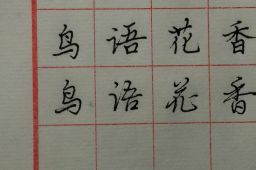 鸟语花香
鸟语花香